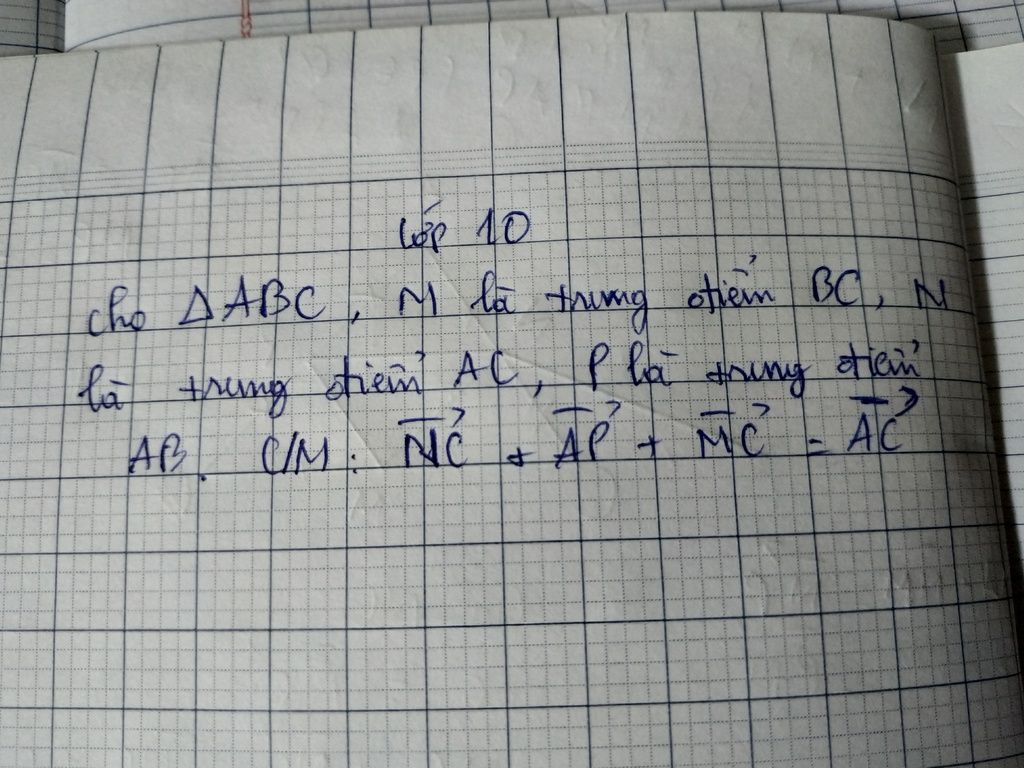 Lớp 10
Cho ΔABC, M là trung điểm BC, N
là trung điểm AC, P là trung điểm
AB. C/M: \overrightarrow{NC} + \overrightarrow{AP} + \overrightarrow{MC} = \overrightarrow{AC}